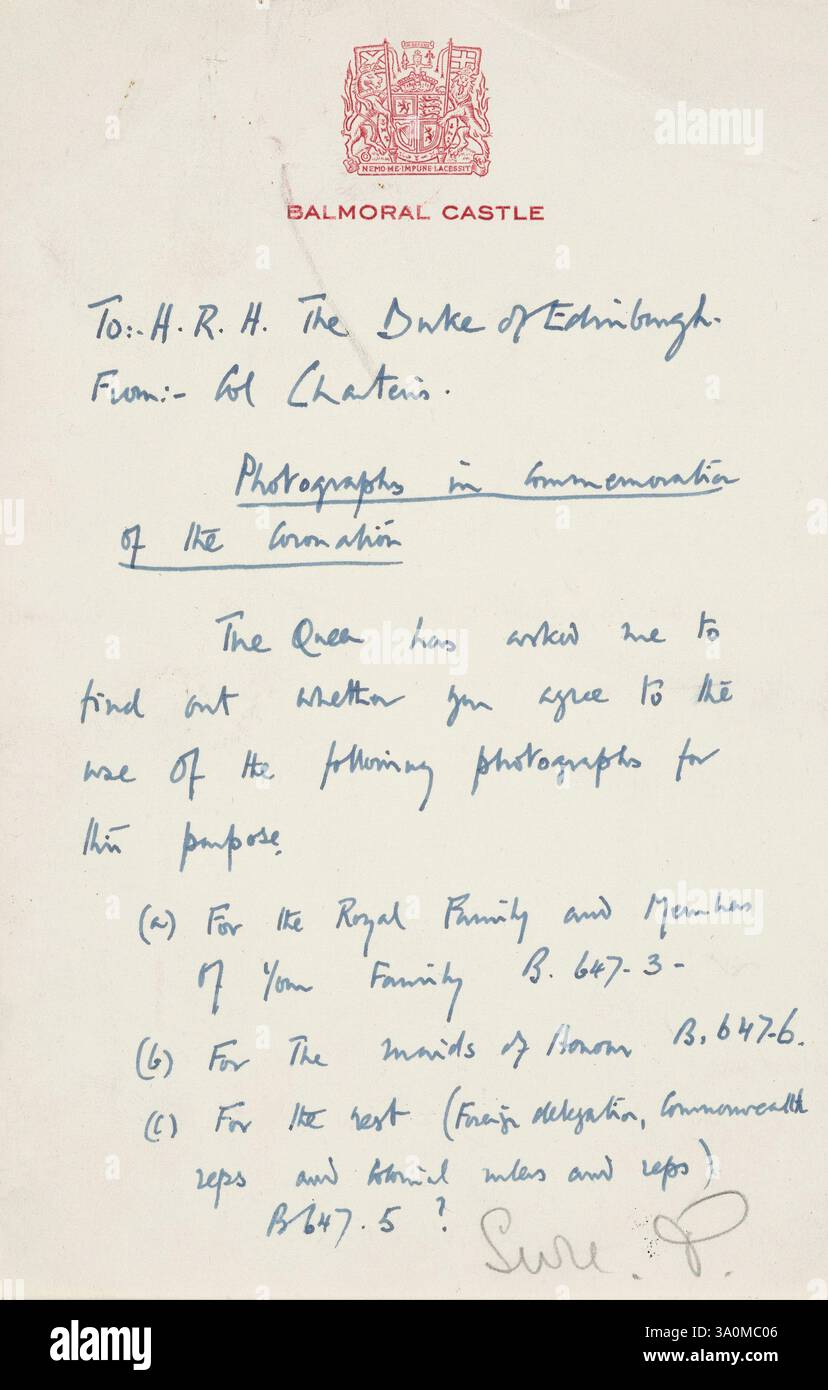 NEMO·ME·IMPUNE·LACESSIT
BALMORAL CASTLE
To:- H. R. H. The Duke of Edinburgh.
From:- Col Charteris.
Photographs in Commemoration
of the Coronation
The Queen has asked me to
find out whether you agree to the
use of the following photographs for
this purpose.
(a) For the Royal Family and Members
of Your Family B. 647-3-
(b) For The Maids of Honour B. 647-6.
(c) For the rest (Foreign delegation, Commonwealth
reps and Colonial rulers and reps)
B 647.5 ?
Sure. P.
alamy
alamy
alamy
alamy
alamy
3A0MC06
www.alamy.com